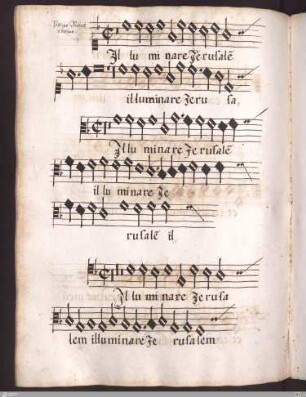 Il lu mi nare Jerusalē
illuminare Jeru sa,
Illu minare Je rusalē
il lu minare Je
rusalē il
Il lu mi nare Je rusa
lem illuminare Je rusalem